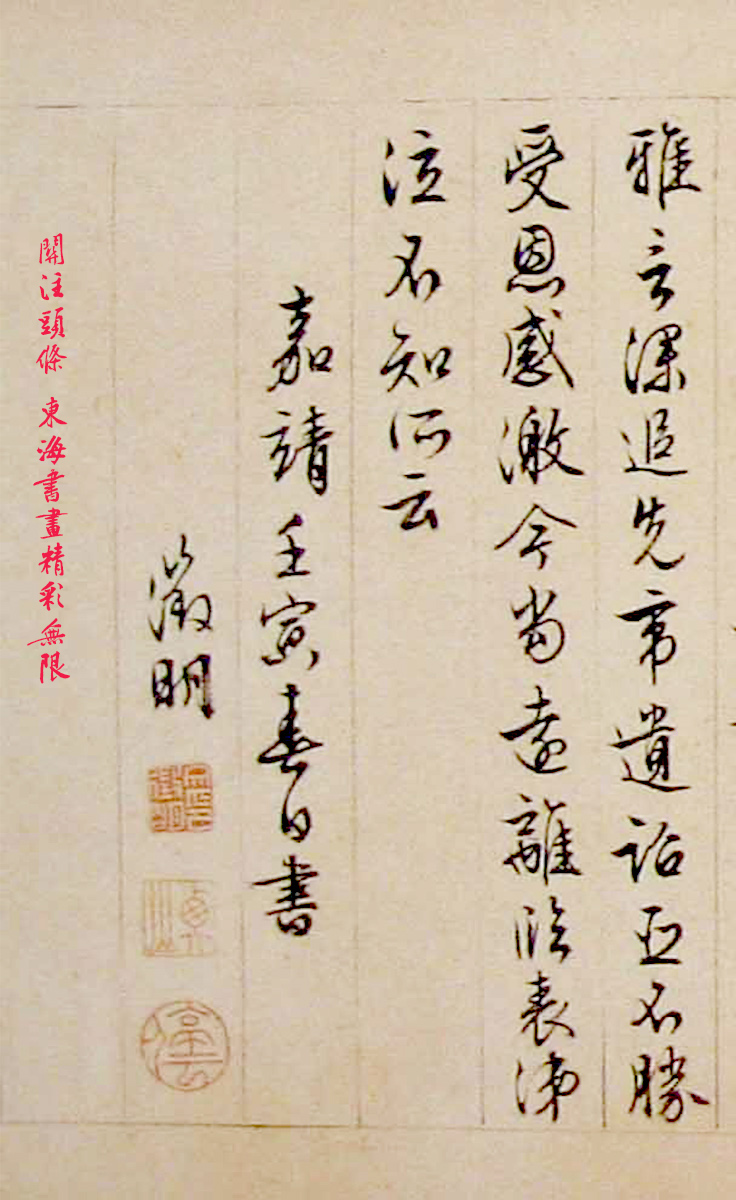 雅言深追先帝遺詔臣不勝
受恩感激今當遠離臨表涕
泣不知所云
嘉靖壬寅春日書
徵明
關注頭條 東海書畫精彩無限